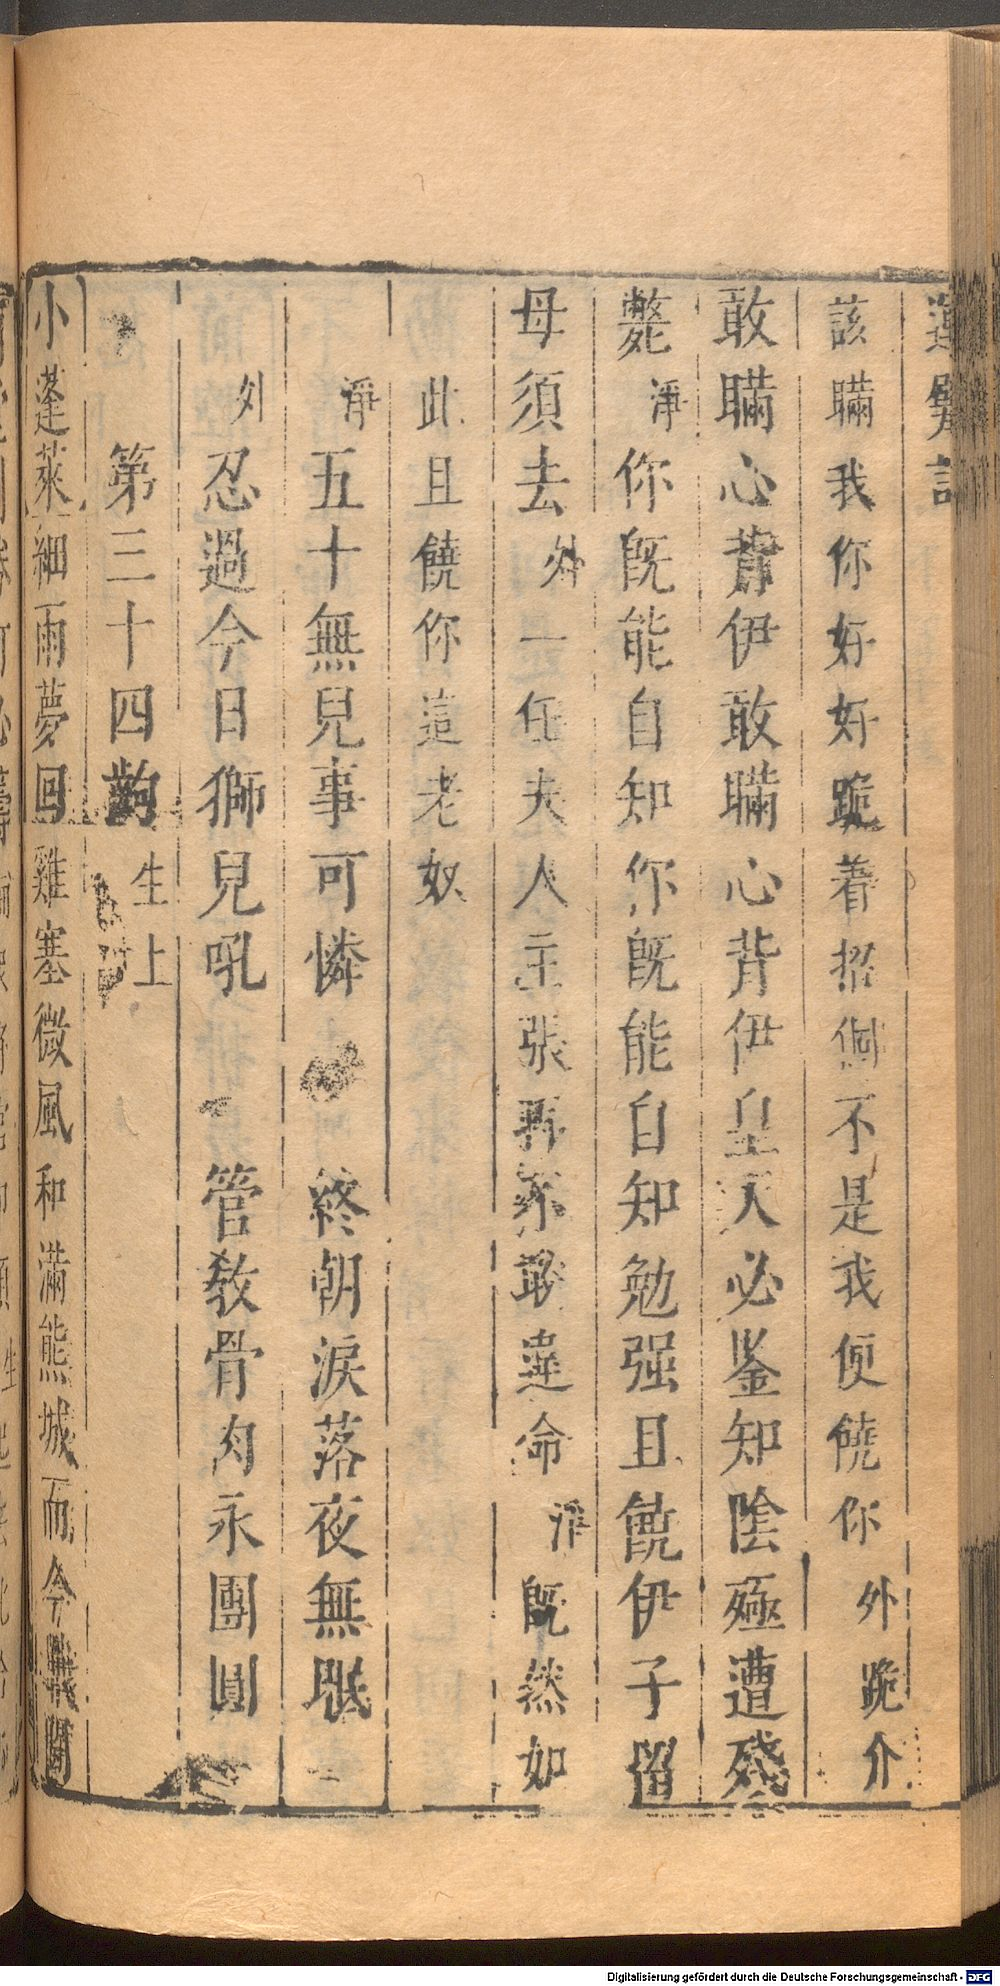 運甓記
該瞞我你好好跪着招個不是我便饒你外跪介
敢瞞心背伊敢瞞心背伊皇天必鉴知陰殛遭殘
斃淨你旣能自知你旣能自知勉强且饒伊子留
母須去外一任夫人主張再不敢違命淨旣然如
此且饒你這老奴
淨五十無兒事可憐 終朝淚落夜無眠
外忍過今日獅兒吼 管敎骨肉永團圓
第三十四齣生上
小蓬萊細雨夢回雞塞微風和滿熊城而今
Digitalisierung gefördert durch die Deutsche Forschungsgemeinschaft - DFG